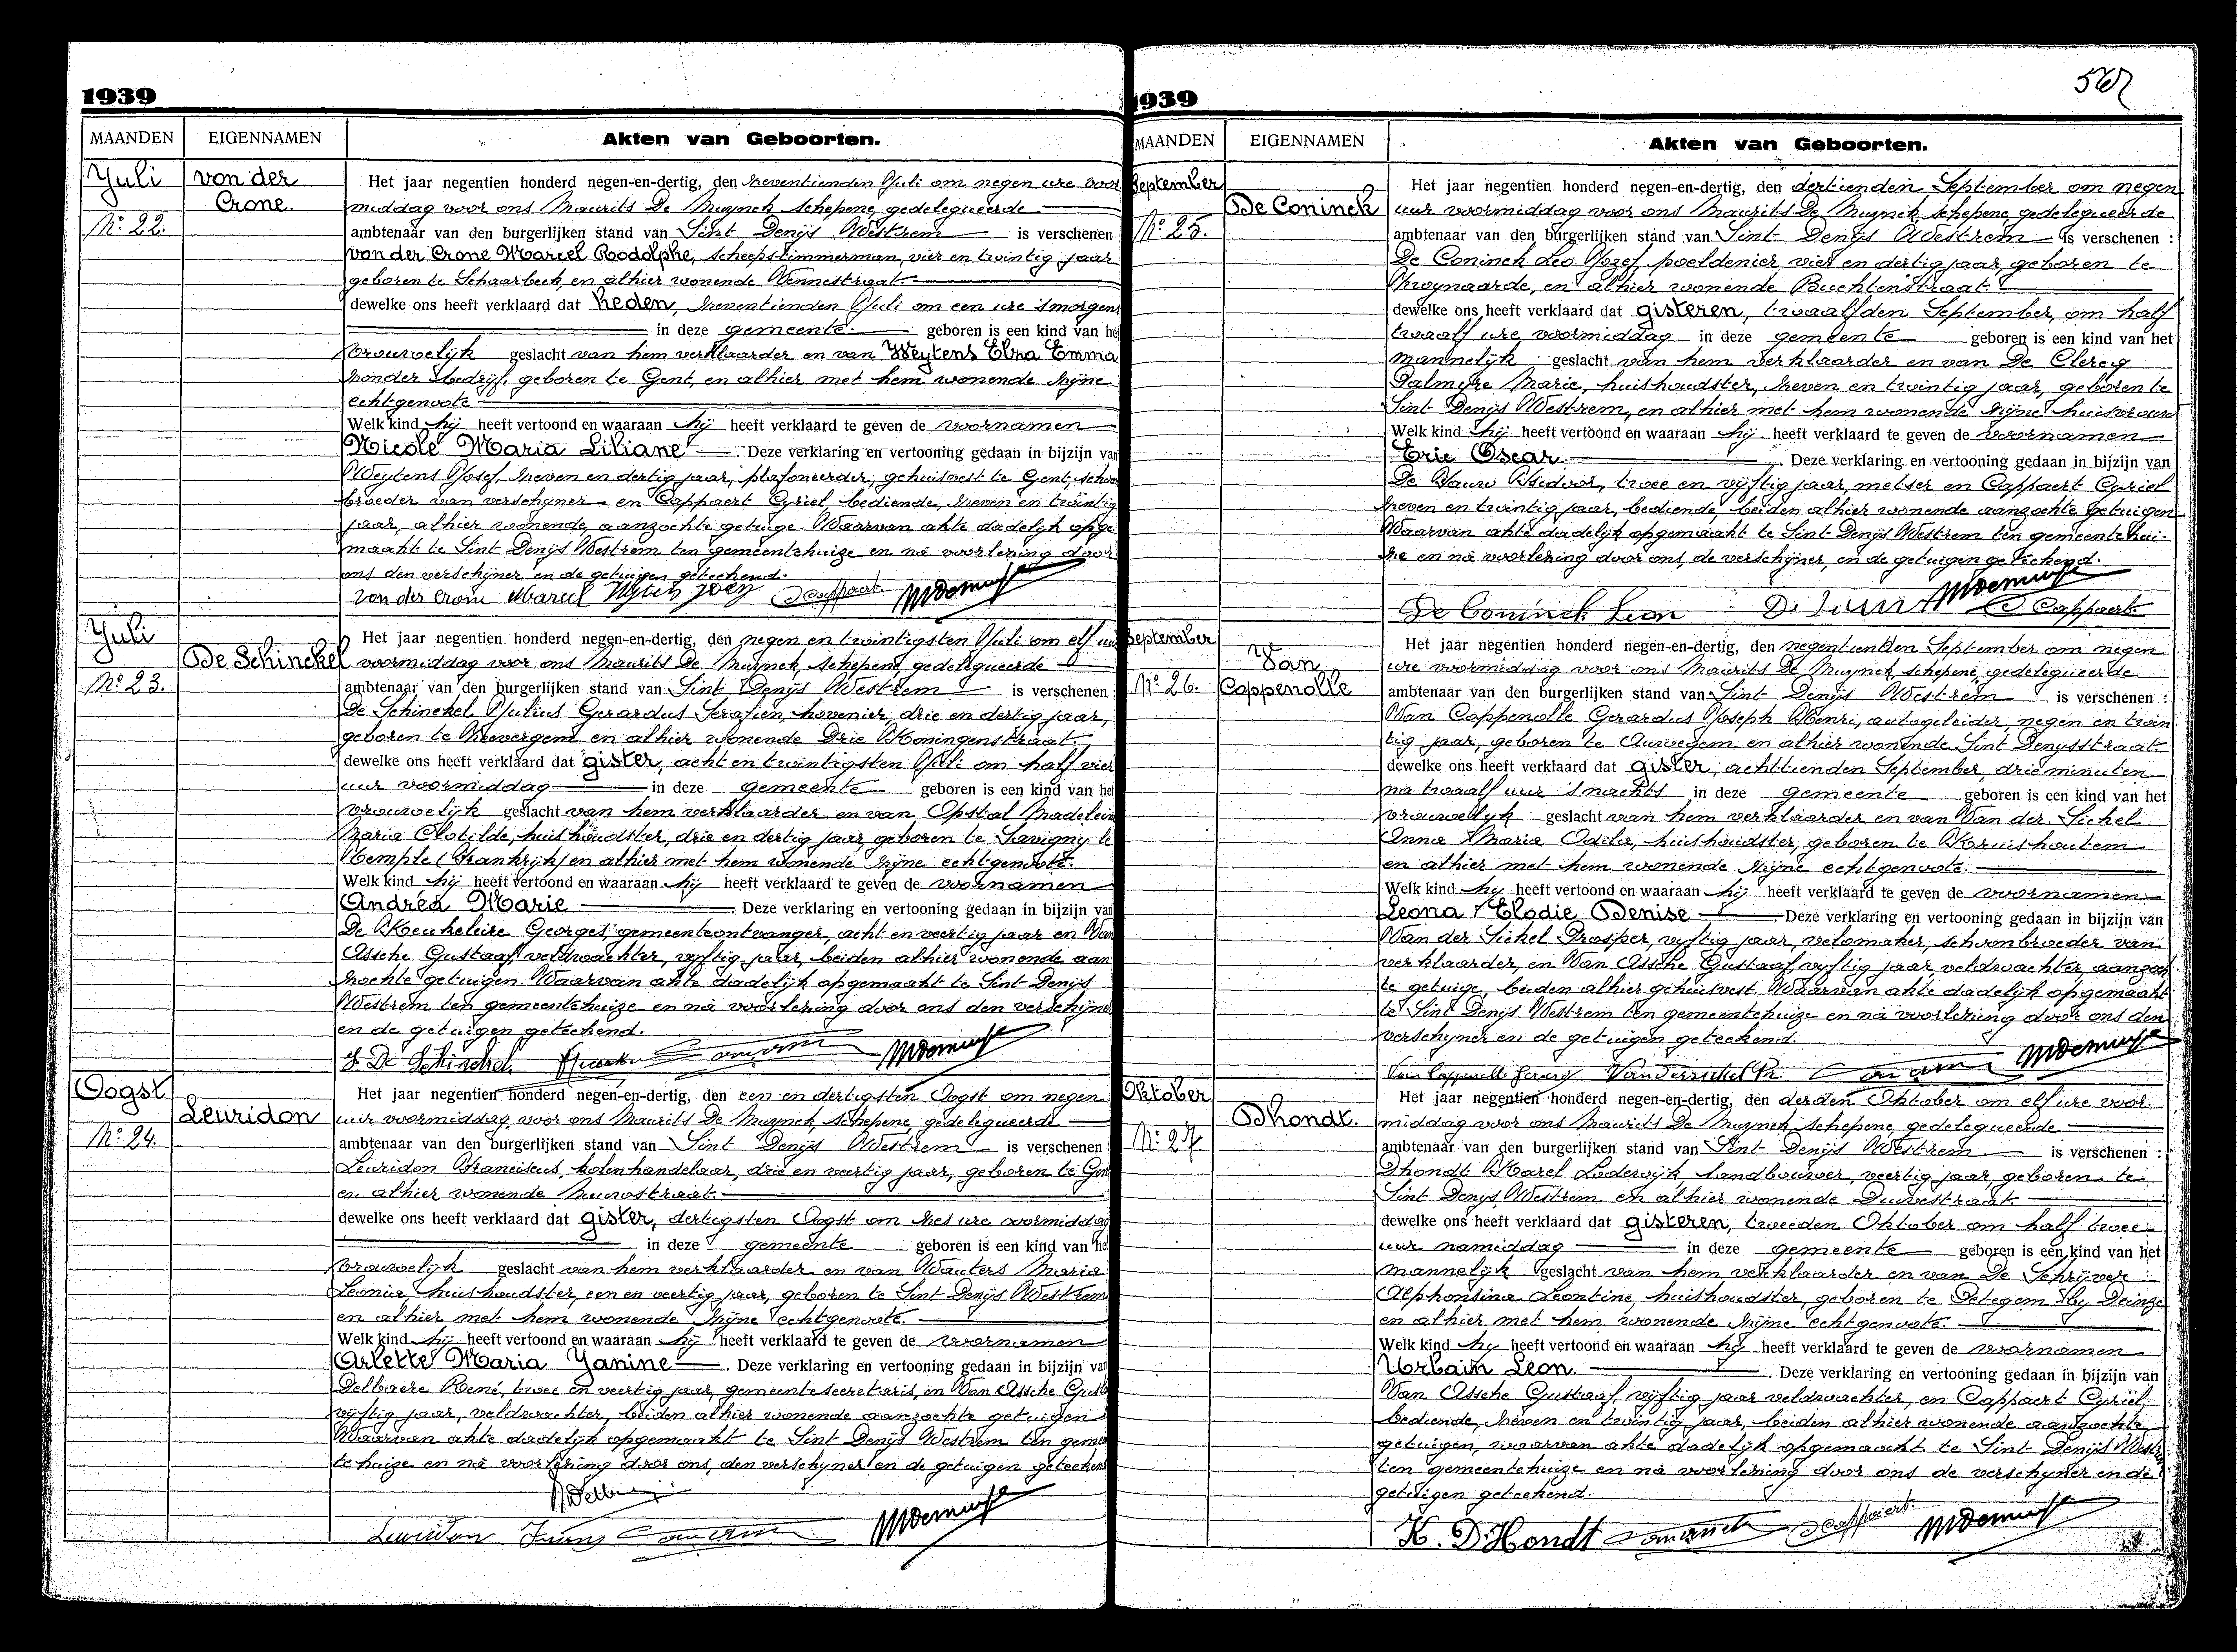 1939
MAANDEN EIGENNAMEN Akten van Geboorten.
Yuli
No 22.
von der
Crone.
Het jaar negentien honderd negen-en-dertig, den zeventienden Juli om negen ure voor
middag voor ons Maurits De Muynck, schepene, gedelegueerde
ambtenaar van den burgerlijken stand van Sint Denijs Westrem is verschenen :
von der Crone Marcel Rodolphe, scheepstimmerman, vier en twintig jaar
geboren te Schaarbeek, en alhier wonende Vennestraat.
dewelke ons heeft verklaard dat heden, zeventienden Juli om een ure 's morgens
in deze gemeente geboren is een kind van het
vrouwelijk geslacht van hem verklaarder en van Weytens Elza Emma
zonder bedrijf, geboren te Gent, en alhier met hem wonende zijne
echtgenoote
Welk kind hij heeft vertoond en waaraan hij heeft verklaard te geven de voornamen
Nicole Maria Liliane. Deze verklaring en vertooning gedaan in bijzijn van
Weytens Josef, zeven en dertig jaar, plafoneerder, gehuisvest te Gent, schoon
broeder van verschyner en Cappaert Cyriel, bediende, zeven en twintig
jaar, alhier wonende, aanzochte getuige. Waarvan akte dadelijk opge
maakt te Sint Denijs Westrem ten gemeentehuize en na voorlezing door
ons den verschijner en de getuigen geteekend.
von der Crone Marcel Weytens Josef C Cappaert MDemuynck
Yuli
No 23.
De Schinckel
Het jaar negentien honderd negen-en-dertig, den negen en twintigsten Juli om elf uur
voormiddag voor ons Maurits De Muynck, schepene, gedelegueerde
ambtenaar van den burgerlijken stand van Sint Denijs Westrem is verschenen :
De Schinckel Julius Gerardus Serafien, hovenier, drie en dertig jaar,
geboren te Zevergem en alhier wonende Drie Koningenstraat.
dewelke ons heeft verklaard dat gister, acht en twintigsten Juli om half vier
uur voormiddag in deze gemeente geboren is een kind van het
vrouwelijk geslacht van hem verklaarder en van Opstal Madelein
Maria Clotilde, huishoudster, drie en dertig jaar, geboren te Savigny le
Temple (Frankrijk) en alhier met hem wonende zijne echtgenoote.
Welk kind hij heeft vertoond en waaraan hij heeft verklaard te geven de voornamen
Andréa Marie Deze verklaring en vertooning gedaan in bijzijn van
De Keukeleire Georges, gemeenteontvanger, acht en veertig jaar en Van
Assche Gustaaf veldwachter, vyftig jaar, beiden alhier wonende aan
zochte getuigen. Waarvan akte dadelijk opgemaakt te Sint Denijs
Westrem ten gemeentehuize en na voorlezing door ons den verschijner
en de getuigen geteekend.
J. De Schinckel MDemuynck
Oogst
No 24.
Leuridon
Het jaar negentien honderd negen-en-dertig, den een en dertigsten Oogst om negen
uur voormiddag voor ons Maurits De Muynck, schepene, gedelegueerde
ambtenaar van den burgerlijken stand van Sint Denijs Westrem is verschenen :
Leuridon Franciscus, kolenhandelaar, drie en veertig jaar, geboren te Gent
en alhier wonende Nieuwstraat.
dewelke ons heeft verklaard dat gister, dertigsten Oogst om zes ure voormiddag
in deze gemeente geboren is een kind van het
vrouwelijk geslacht van hem verklaarder en van Wauters Maria
Leonie huishoudster, een en veertig jaar, geboren te Sint Denijs Westrem
en alhier met hem wonende zijne echtgenoote.
Welk kind hij heeft vertoond en waaraan hij heeft verklaard te geven de voornamen
Arlette Maria Yanine. Deze verklaring en vertooning gedaan in bijzijn van
Delbaere René, twee en veertig jaar, gemeentesecretaris, en Van Assche Gust
vijftig jaar, veldwachter, beiden alhier wonende aanzochte getuigen
Waarvan akte dadelijk opgemaakt te Sint Denijs Westrem ten gemeen
tehuize en na voorlezing door ons, den verschyner en de getuigen geteekend
Leuridon Frans MDemuynck
1939
562
MAANDEN EIGENNAMEN Akten van Geboorten.
September
No 25.
De Coninck
Het jaar negentien honderd negen-en-dertig, den dertienden September om negen
uur voormiddag voor ons Maurits De Muynck, schepene, gedelegueerde
ambtenaar van den burgerlijken stand van Sint Denijs Westrem is verschenen :
De Coninck Leo Jozef, poeldenier vier en dertig jaar, geboren te
Zwynaarde, en alhier wonende Buchtenstraat.
dewelke ons heeft verklaard dat gisteren, twaalfden September, om half
twaalf ure voormiddag in deze gemeente geboren is een kind van het
mannelijk geslacht van hem verklaarder en van De Clercq
Palmyre Marie, huishoudster, zeven en twintig jaar, geboren te
Sint Denijs Westrem, en alhier met hem wonende zijne huisvrouw
Welk kind hij heeft vertoond en waaraan hij heeft verklaard te geven de voornamen
Eric Oscar. Deze verklaring en vertooning gedaan in bijzijn van
De Vauw Isidoor, twee en vijftig jaar, metser en Cappaert Cyriel
zeven en twintig jaar, bediende, beiden alhier wonende aanzochte getuigen
Waarvan akte dadelijk opgemaakt te Sint Denijs Westrem ten gemeentehui-
ze en na voorlezing door ons, de verschijner, en de getuigen geteekend.
De Coninck Leon C Cappaert MDemuynck
September
No 26.
Van
Coppenolle
Het jaar negentien honderd negen-en-dertig, den negentienden September om negen
ure voormiddag voor ons Maurits De Muynck, schepene, gedelegueerde
ambtenaar van den burgerlijken stand van Sint Denijs Westrem is verschenen :
Van Coppenolle Gerardus Joseph Henri, autogeleider, negen en twin
tig jaar, geboren te Auwegem en alhier wonende Sint Denysstraat
dewelke ons heeft verklaard dat gister, achttienden September, drie minuten
na twaalf uur 's nachts in deze gemeente geboren is een kind van het
vrouwelyk geslacht van hem verklaarder en van Van der Sickel
Anna Maria Odila, huishoudster, geboren te Kruishoutem
en alhier met hem wonende zijne echtgenoote.
Welk kind hy heeft vertoond en waaraan hij heeft verklaard te geven de voornamen
Leona Elodie Denise Deze verklaring en vertooning gedaan in bijzijn van
Van der Sickel Prosper, vyftig jaar, velomaker, schoonbroeder van
verklaarder, en Van Assche Gustaaf, vyftig jaar, veldwachter, aanzoch
te getuige, beiden alhier gehuisvest. Waarvan akte dadelijk opgemaakt
te Sint Denijs Westrem ten gemeentehuize en na voorlezing door ons den
verschyner en de getuigen geteekend.
Van Coppenolle Gerard Vandersickel Pr. MDemuynck
Oktober
No 27.
Dhondt.
Het jaar negentien honderd negen-en-dertig, den derden Oktober om elf ure voor-
middag voor ons Maurits De Muynck, schepene, gedelegueerde
ambtenaar van den burgerlijken stand van Sint Denijs Westrem is verschenen :
Dhondt Karel Lodewijk, landbouwer, veertig jaar, geboren te
Sint Denys Westrem en alhier wonende Duivestraat
dewelke ons heeft verklaard dat gisteren, tweeden Oktober om half twee
uur namiddag in deze gemeente geboren is een kind van het
mannelijk geslacht van hem verklaarder en van De Schrijver
Alphonsina Leontine, huishoudster, geboren te Petegem by Deinze
en alhier met hem wonende zijne echtgenoote.
Welk kind hy heeft vertoond en waaraan hij heeft verklaard te geven de voornamen
Urbain Leon. Deze verklaring en vertooning gedaan in bijzijn van
Van Assche Gustaaf, vijftig jaar veldwachter, en Cappaert Cyriel,
bediende, zeven en twintig jaar, beiden alhier wonende aanzochte
getuigen, waarvan akte dadelijk opgemaakt te Sint Denijs Westr
ten gemeentehuize en na voorlezing door ons de verschyner en de
getuigen geteekend.
K. D'Hondt C Cappaert MDemuynck